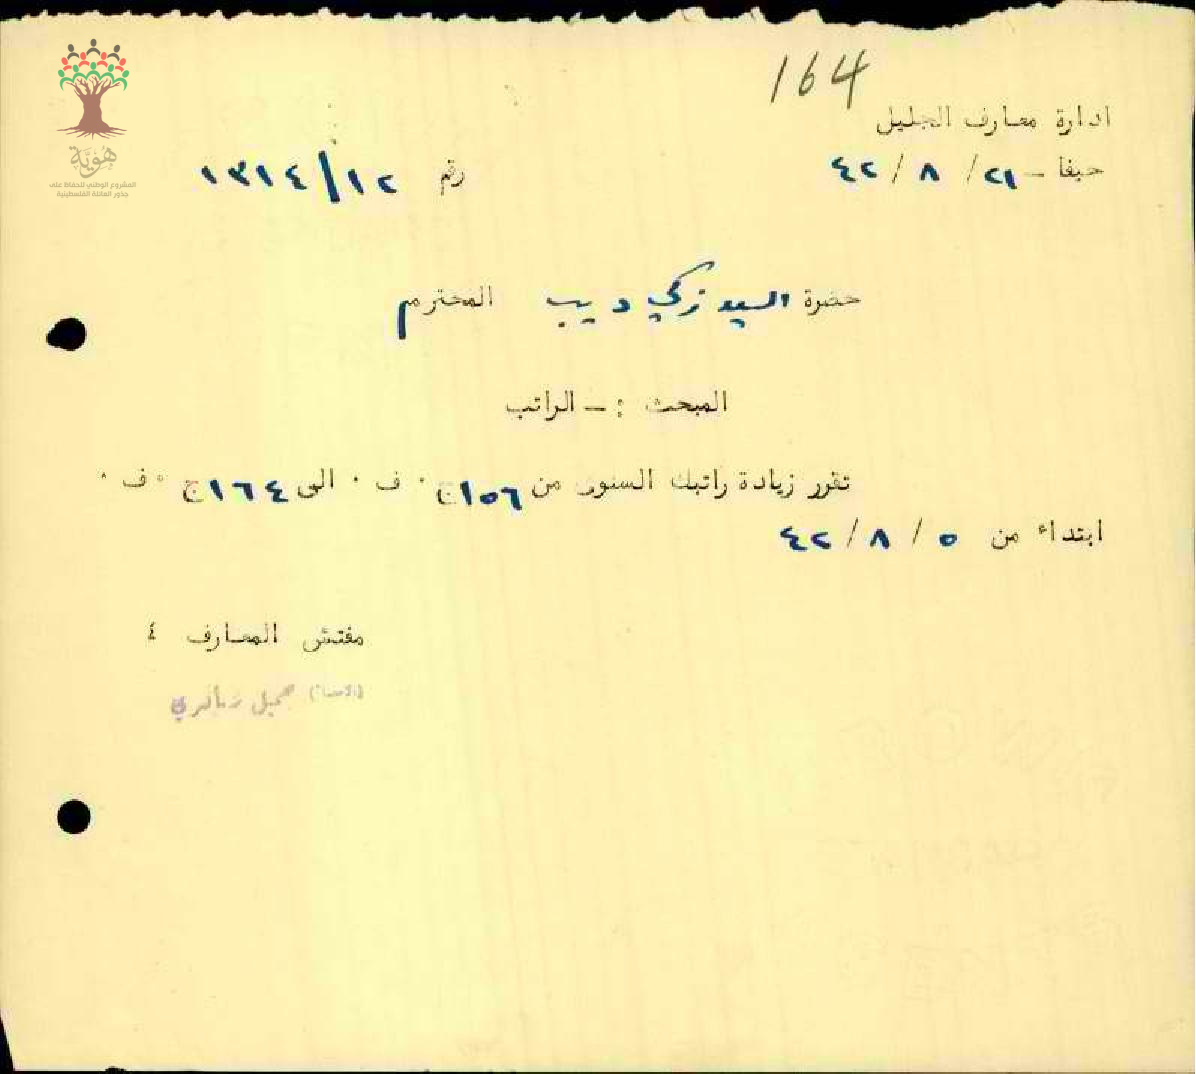 164
ادارة معارف الجليل
حيفا – ٢١ / ٨ / ٤٢ رقم ١٣١٤/١٢
حضرة السيد زكي ديب المحترم
المبحث : – الراتب
تقرر زيادة راتبك السنوى من ١٥٦ج ٠ ف ٠ الى ١٦٤ج ٠ ف ٠
ابتداء من ٥ / ٨ / ٤٢
مفتش المعارف ٤
(الامضاء) جميل
هوية
المشروع الوطني للحفاظ على
جذور العائلة الفلسطينية